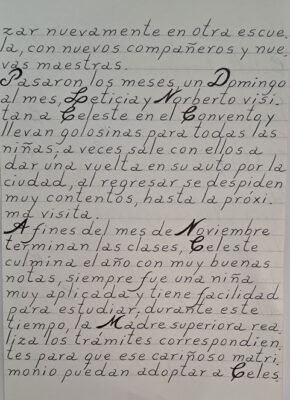 zar nuevamente en otra escue-
la, con nuevos compañeros y nue-
vas maestras.
Pasaron los meses, un Domingo
al mes, Leticia y Norberto visi-
tan a Celeste en el Convento y
llevan golosinas para todas las
niñas; a veces sale con ellos a
dar una vuelta en su auto por la
ciudad, al regresar se despiden
muy contentos, hasta la próxi-
ma visita.
A fines del mes de Noviembre
terminan las clases, Celeste
culmina el año con muy buenas
notas, siempre fue una niña
muy aplicada y tiene facilidad
para estudiar, durante este
tiempo, la Madre superiora rea-
liza los trámites correspondien-
tes para que ese cariñoso matri-
monio puedan adoptar a Celes-